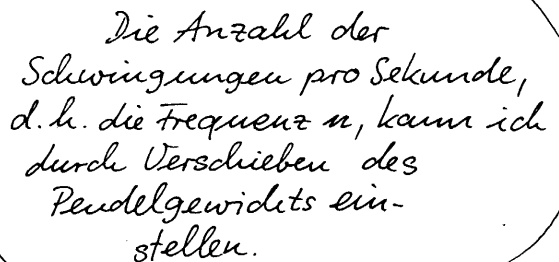 Die Anzahl der
Schwingungen pro Sekunde,
d.h. die Frequenz n, kann ich
durch Verschieben des
Pendelgewichts ein-
stellen.